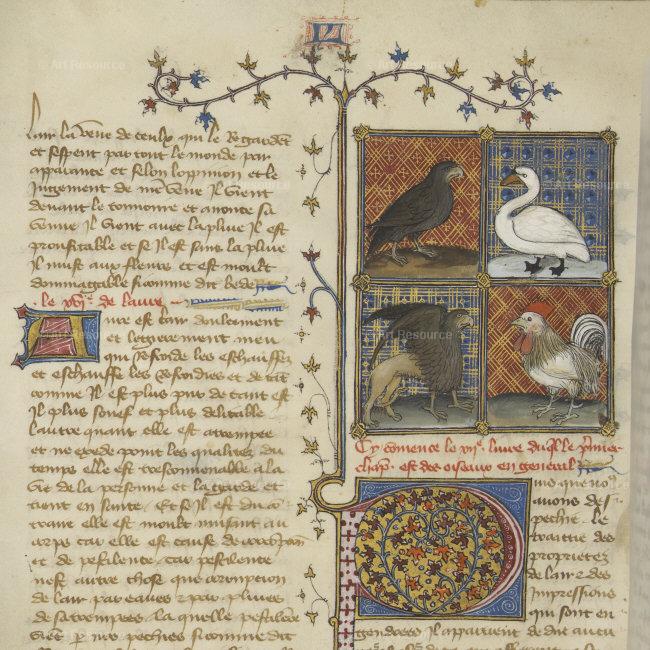 lair la venue de ceulx qui le regardent
et sespent par tout le monde par
apparance et selon loppinion et le
jugement de
devant le tonnoire et anonce sa
venue Il vient avec la pluie Il est
prouffitable et se Il est sans la pluie
Il nuist aux fleurs et est moult
dommagable sicomme dit bede
le de laure
Aure est lair doulcement
et legierement meu
qui refroide les eschauffez
et eschauffe les refroidies et de tant
comme Il est plus pur de tant est
Il plus souef et plus delitable
laultre quant elle est atrempee
et ne excede point les qualitez du
temps elle est tresconvenable a la
vie de la personne et la garde et
tient en sante Et se Il est du con
traire elle est moult nuisant au
corps car elle est cause de corrupcion
et de pestilence car pestilence
nest autre chose que corrupcion
de lair par eaues pluies
desatrempees la quelle pestilence
vient pechies sicomme dit
Cy commence le livre duquel le premier
chap. est des oiseaux en general
que nous
avons
le
traictie des
proprietez
de lair des
Impressions
qui sont en
gendrees Il appartient de dire aucu
© Art Resource
© Art Resource
© Art Resource
© Art Resource